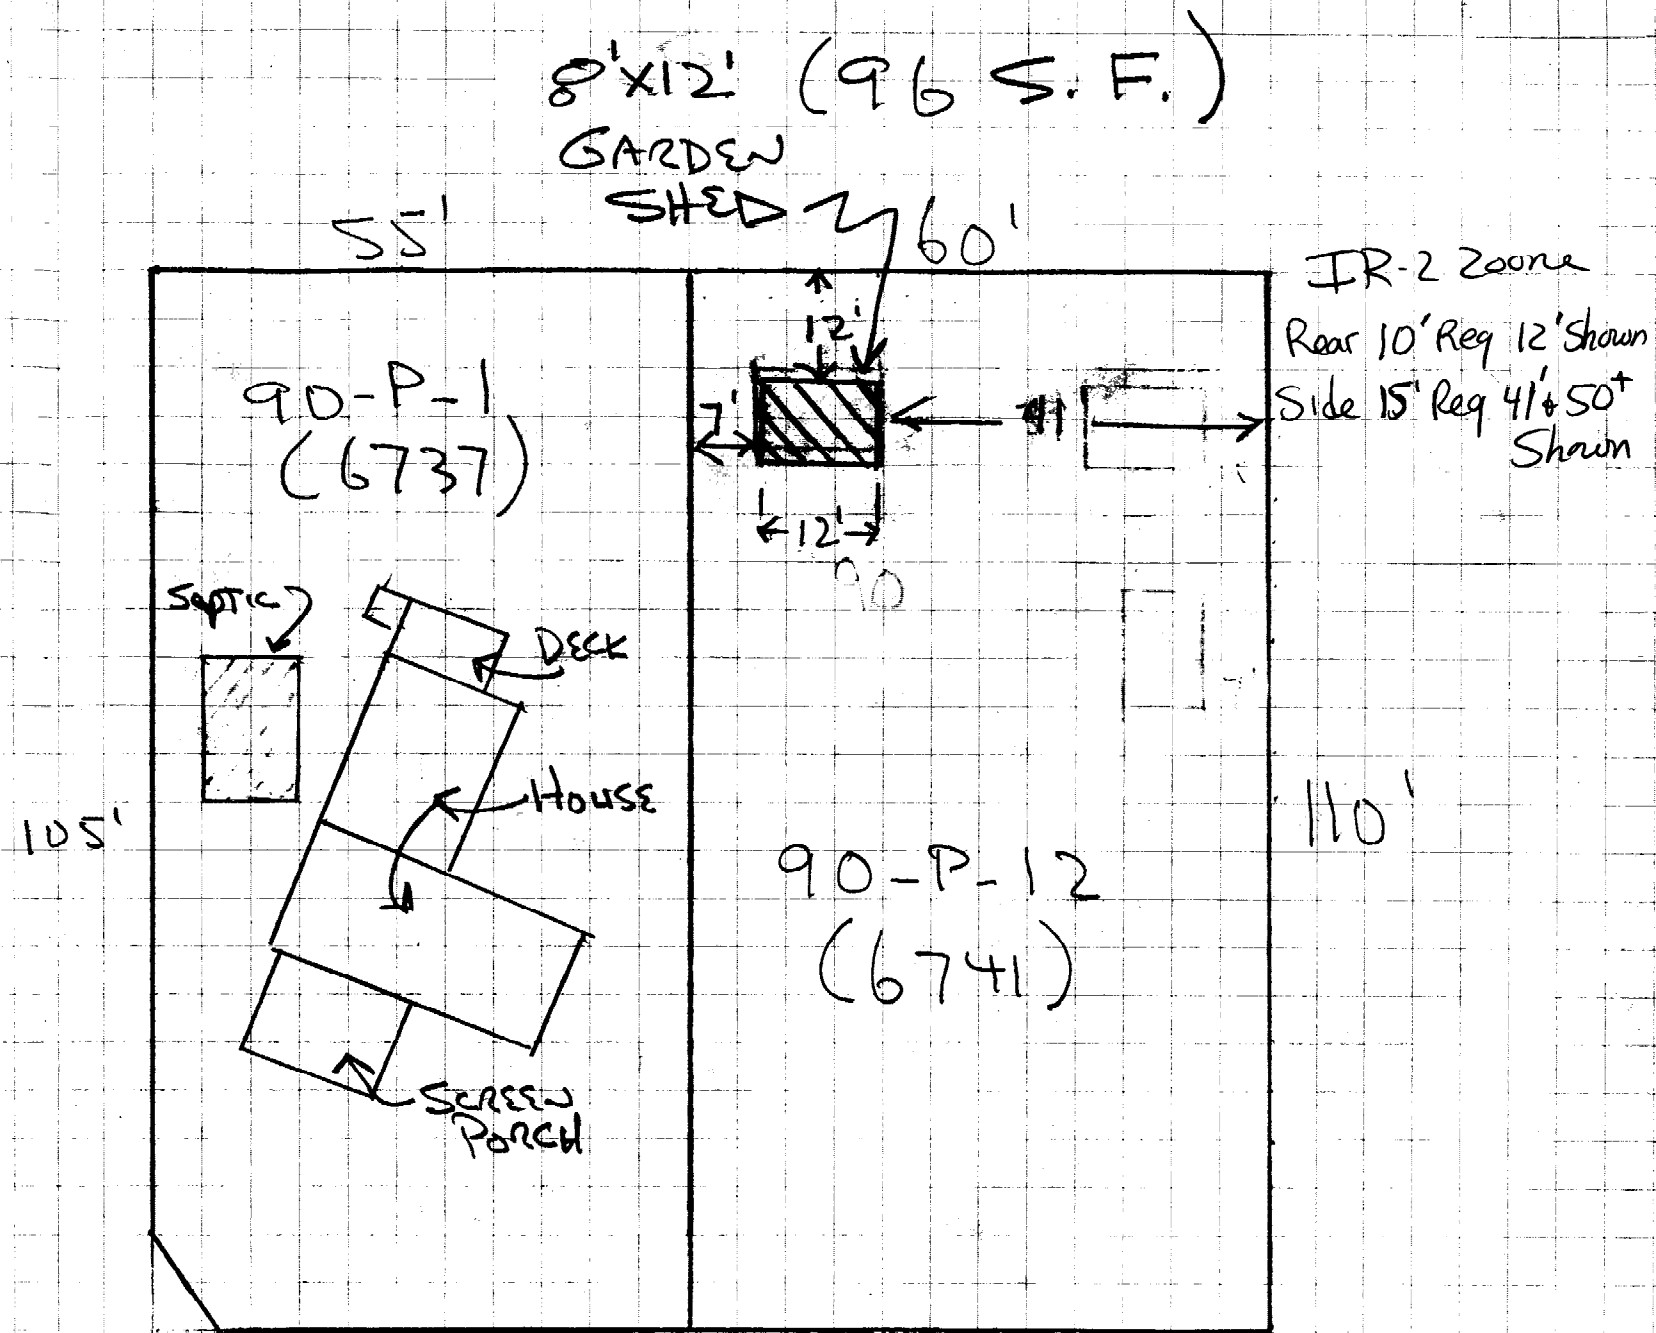 8'x12' (96 S.F.)
GARDEN
SHED
55'
60'
IR-2 Zoone
Rear 10' Req 12' Shown
Side 15' Req 41' & 50+
Shown
12'
90-P-1
(6737)
7'
41
12'
90
Septic
DECK
HOUSE
105'
110'
90-P-12
(6741)
SCREEN
PORCH